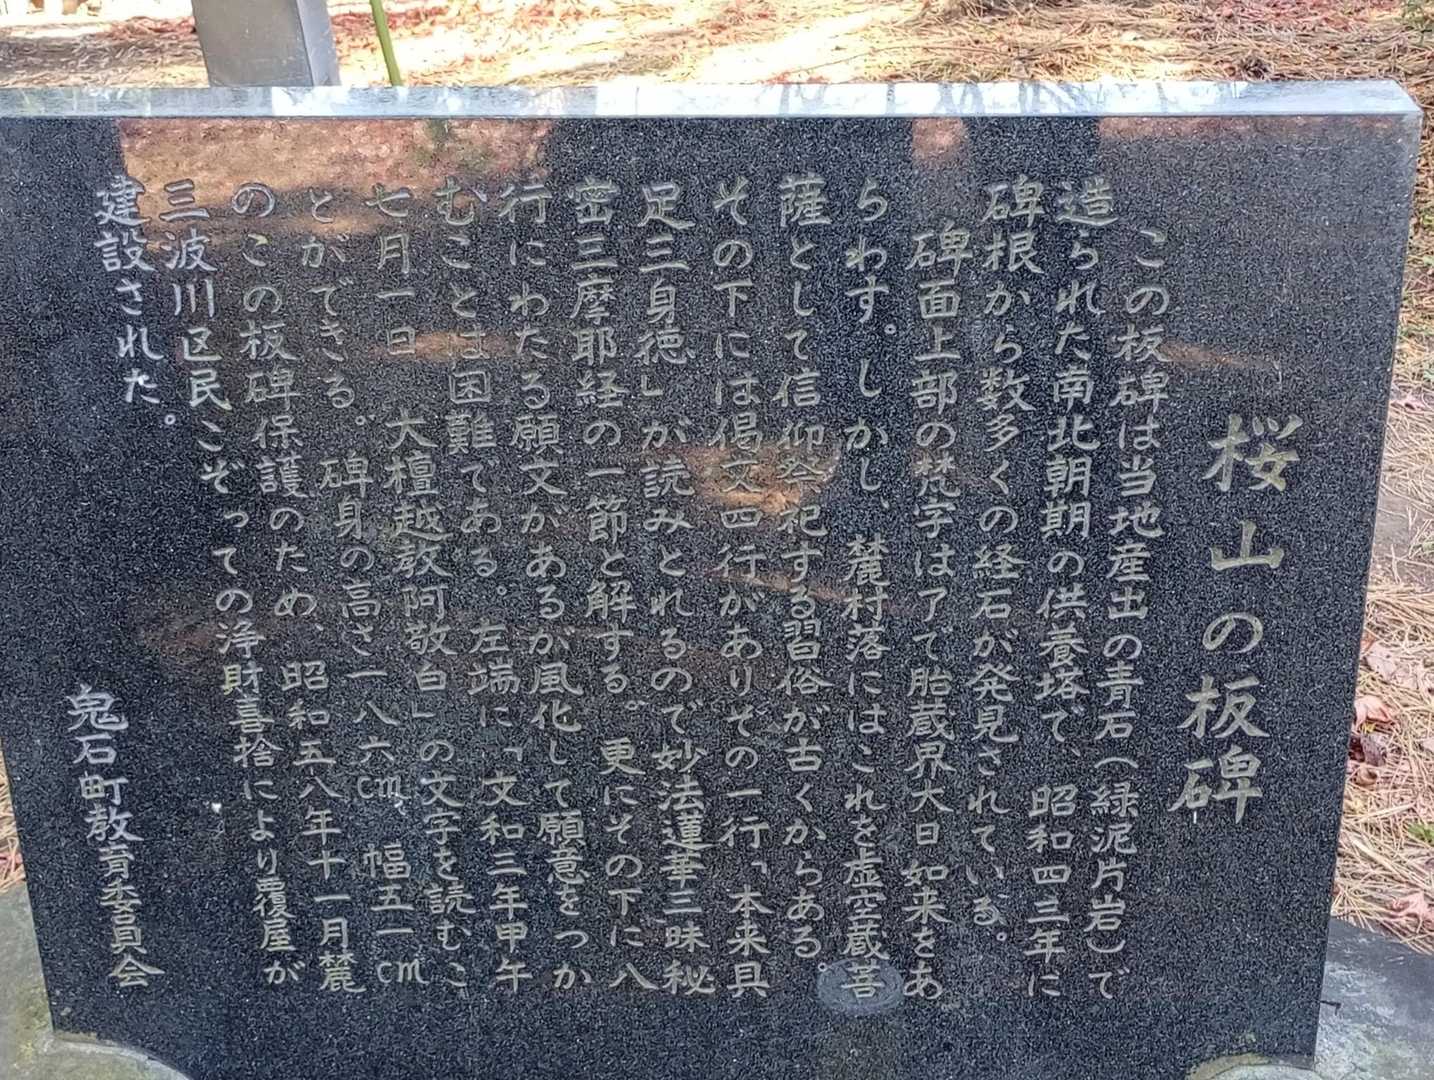 桜山の板碑
この板碑は当地産出の青石(緑泥片岩)で
造られた南北朝期の供養塔で、昭和四三年に
碑根から数多くの経石が発見されている。
碑面上部の梵字は了で胎蔵界大日如来をあ
らわす。しかし、麓村落にはこれを虚空蔵菩
薩として信仰祭祀する習俗が古くからある。
その下には偈文四行がありその一行「本来具
足三身徳」が読みとれるので妙法蓮華三昧秘
密三摩耶経の一節と解する。更にその下に八
行にわたる願文があるが風化して願意をつか
むことは困難である。左端に「文和三年甲午
七月一日 大檀越敦阿敬白」の文字を読むこ
とができる。碑身の高さ一八六cm 幅五一cm
のこの板碑保護のため、昭和五八年十一月麓
三波川区民こぞっての浄財喜捨により覆屋が
建設された。
鬼石町教育委員会